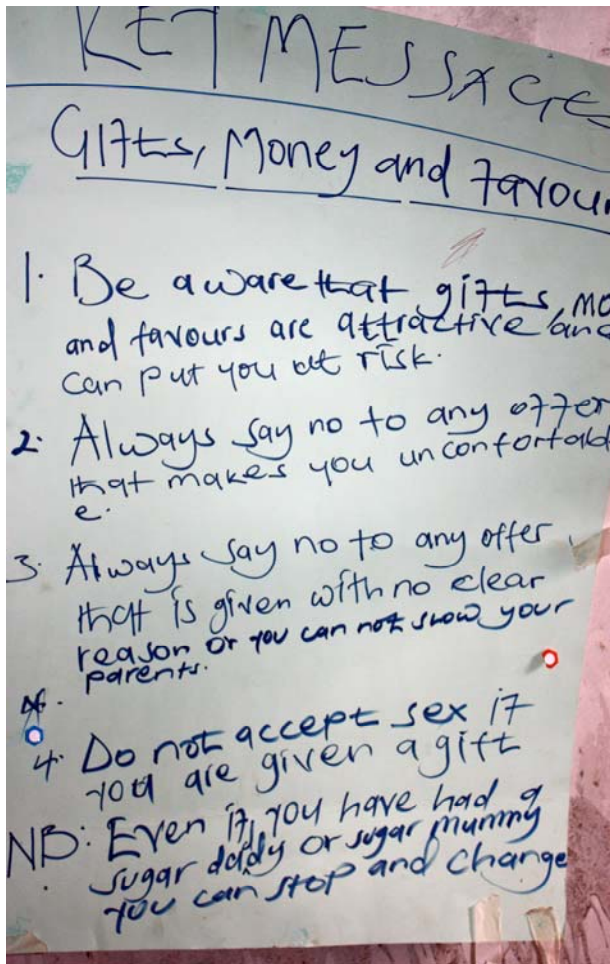 KEY MESSAGES
Gifts, Money and favour
1. Be aware that gifts, mo
and favours are attractive and
can put you at risk.
2. Always say no to any offer
that makes you unconfortabl
e.
3. Always say no to any offer
that is given with no clear
reason or you can not show your
parents.
4. Do not accept sex if
you are given a gift
NB: Even if you have had a
sugar daddy or sugar mummy
you can stop and change